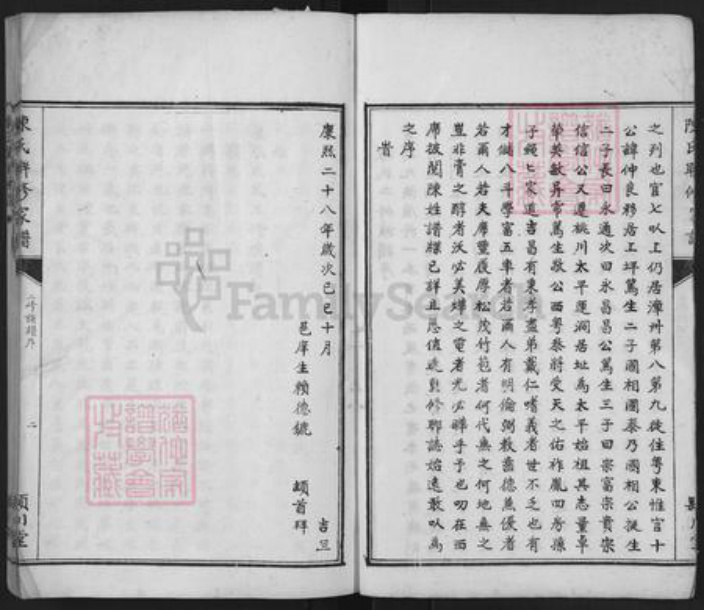 之列也官七以上仍居漳州第八第九徙住粤東惟官十
公諱仲良移居上坪篤生二子國相國泰乃國相公挺生
二子長曰永通次曰永昌昌公篤生三子曰崇富崇貴崇
信信公又遷桃川太平運澗居址為太平始祖其志量卓
犖英敏异常篤生敬公西粤泰將受天之佑祚胤四房孫
子繩七家道吉昌有東孝盡弟戴仁嗜義者世不乏也有
才儲八斗學富五車者若而人有明倫弼教齒德兼優者
若而人若夫摩璽履厚松茂竹苞者何代無之何地無之
豈非膏之醇者沃必美燁之電者光必曄乎予也叨在西
席披閱陳姓譜牒已詳且悉值逓重修聊誌始遠敢以為
之序
旹
康熙二十八年歲次己巳十月 吉旦
邑庠生賴德 頓首拜
陳氏 修家譜
二修譜 序
二
潁川堂
FamilySearch